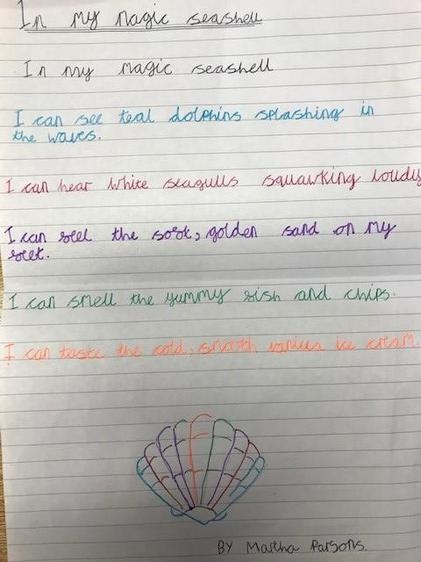 In my magic seashell
In my magic seashell
I can see teal dolphins splashing in
the waves.
I can hear white seagulls squawking loudly
I can feel the soft, golden sand on my
feet.
I can smell the yummy fish and chips.
I can taste the cold, smooth vanilla ice cream.
By Martha Parsons.